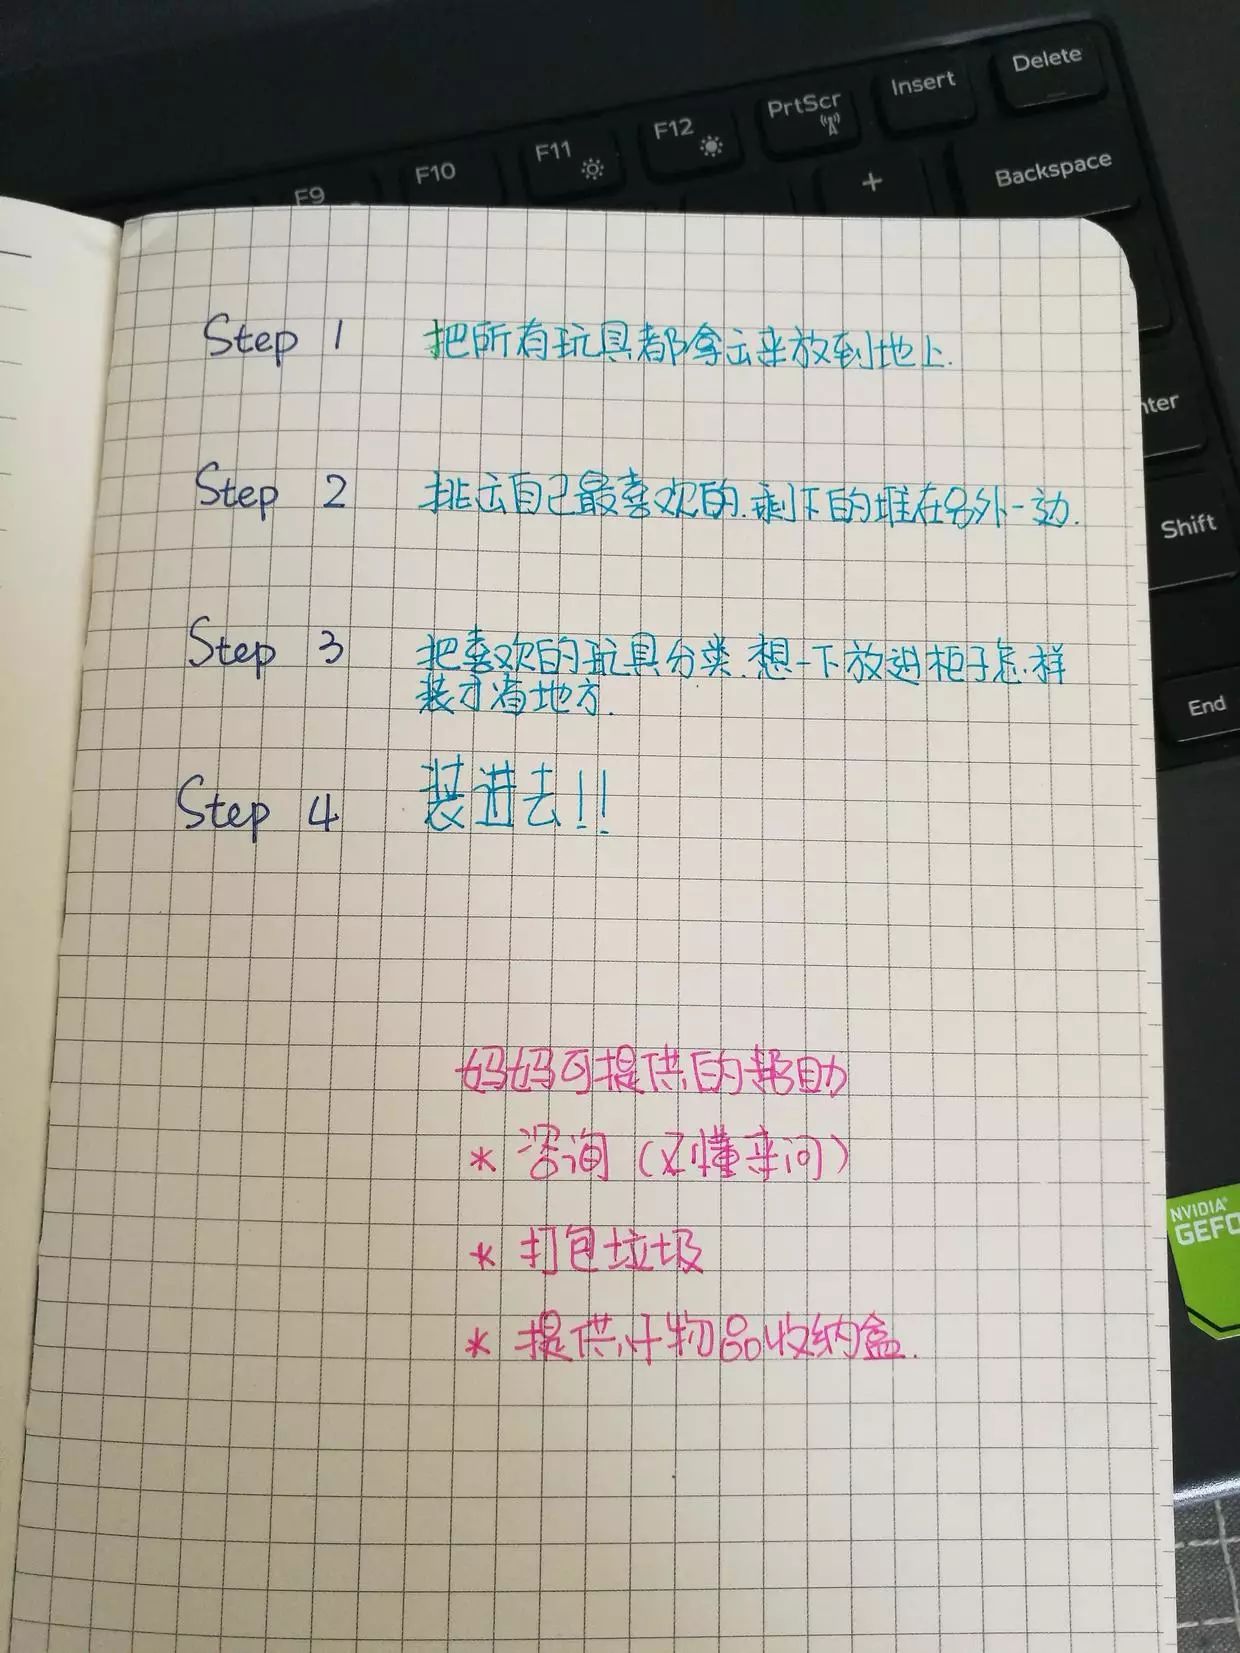 Delete
Insert
PrtScr
F12
F11
F10
F9
+
Backspace
Step 1 把所有玩具都拿出来放到地上.
nter
Step 2 挑出自己最喜欢的.剩下的堆在另外一边.
Shift
Step 3 把喜欢的玩具分类.想一下放进柜子怎样
装才省地方.
End
Step 4 装进去!!
妈妈可提供的帮助
* 咨询(不懂来问)
NVIDIA
GEFO
* 打包垃圾
* 提供小物品收纳盒.